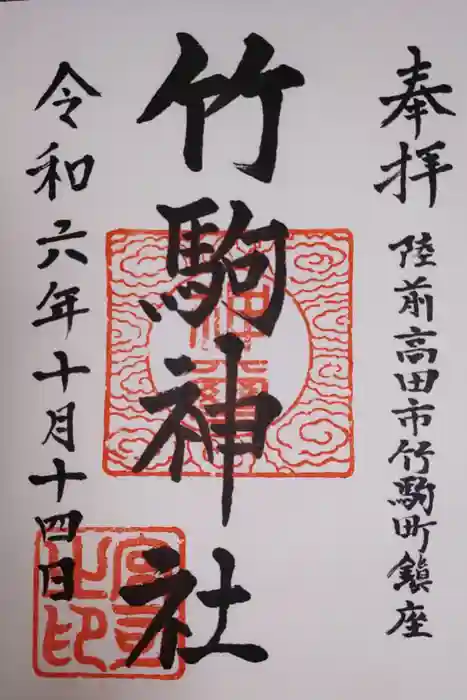 奉拝
陸前高田市竹駒町鎮座
竹駒神社
令和六年十月十四日
神璽
宮司之印